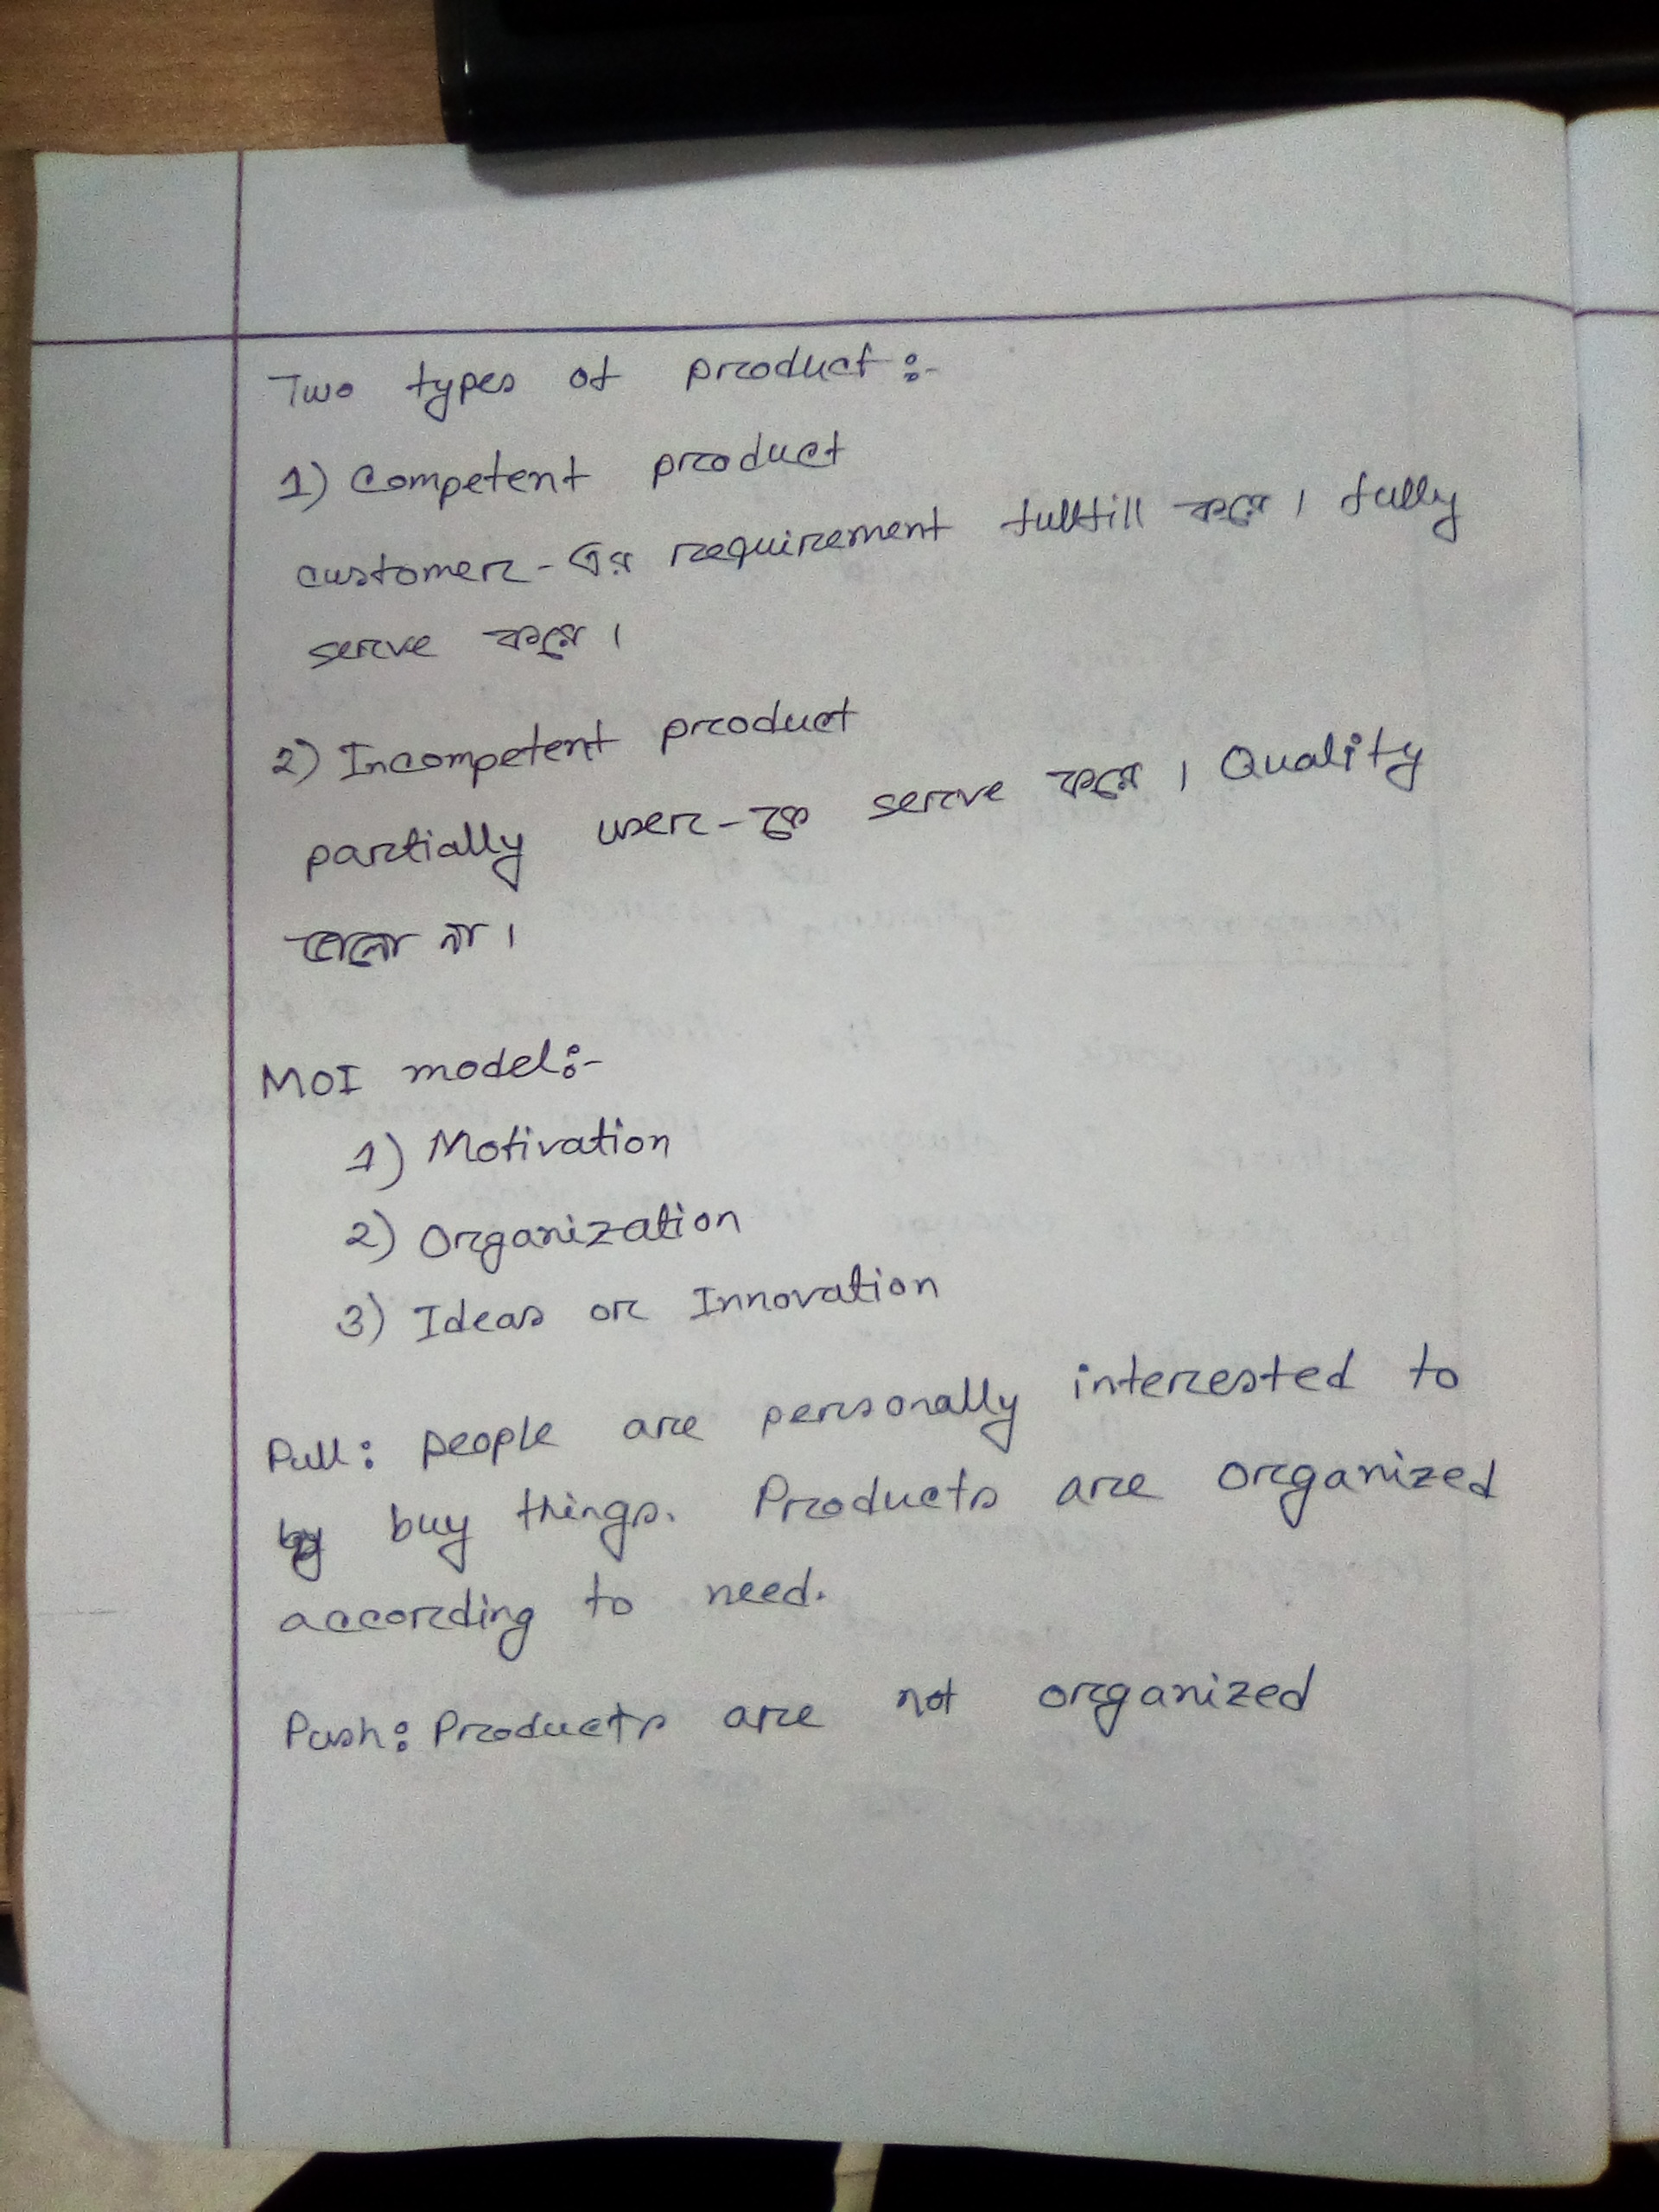 Two types of product:-
1) Competent product
customer-এর requirement fullfill করে। fully
serve করে।
2) Incompetent product
partially user-কে serve করে। Quality
ভালো না।
MOI model:-
1) Motivation
2) Organization
3) Ideas or Innovation
Pull: people are personally interested to
buy things. Products are organized
according to need.
Push: Products are not organized